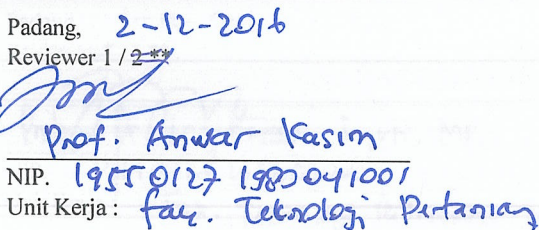 Padang, 2-12-2016
Reviewer 1 / 2 **
Prof. Anwar Kasim
NIP. 19550127 198004 1001
Unit Kerja : fak. Teknologi Pertanian